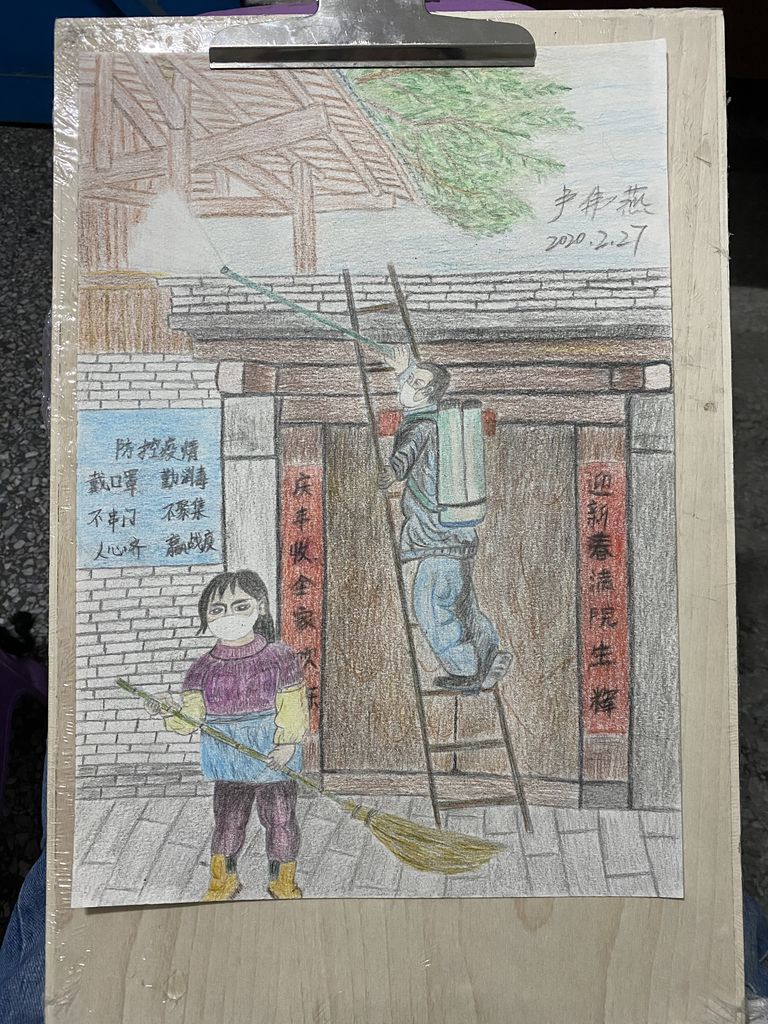 尹伟燕
2020.2.27
防控疫情
戴口罩 勤消毒
不串门 不聚集
人心齐 赢战疫
庆丰收全家欢跃
迎新春满院生辉